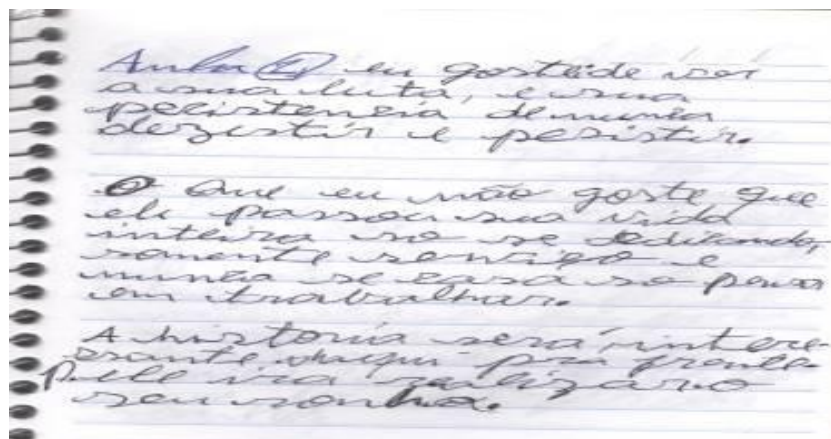 Aula 1 eu gostei de ver
a sua luta, e sua
pecistencia de nunca
dezistir e pesistir.
O que eu não goste que
ele passou sua vida
inteira so se dedicando,
somente serviço e
nunca se casa so pensa
em trabalhar.
A historia será intere-
ssante daqui pra frente
P. ele ira realizar o
seu sonho.